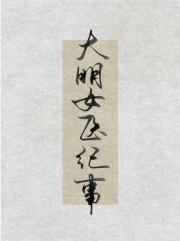 大明女医纪事